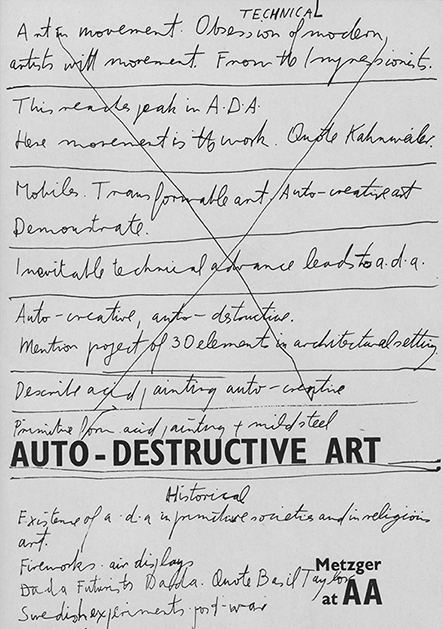 TECHNICAL
Art in movement. Obsession of modern
artists with movement. From the Impressionists.
This reaches peak in A.D.A.
Here movement is the work. Quote Kahnweiler.
Mobiles. Transformable art, Auto-creative art
Demonstrate.
Inevitable technical advance leads to a.d.a.
Auto-creative, auto-destructive.
Mention project of 30 elements in architectural setting
Describe acid painting auto-creative
Primitive form acid painting + mild steel
AUTO-DESTRUCTIVE ART
Historical
Existence of a.d.a in primitive societies and in religious
art.
Fireworks. air displays
Dada Futurists Dada. Quote Basil Taylor
Swedish experiments post-war
Metzger
at AA